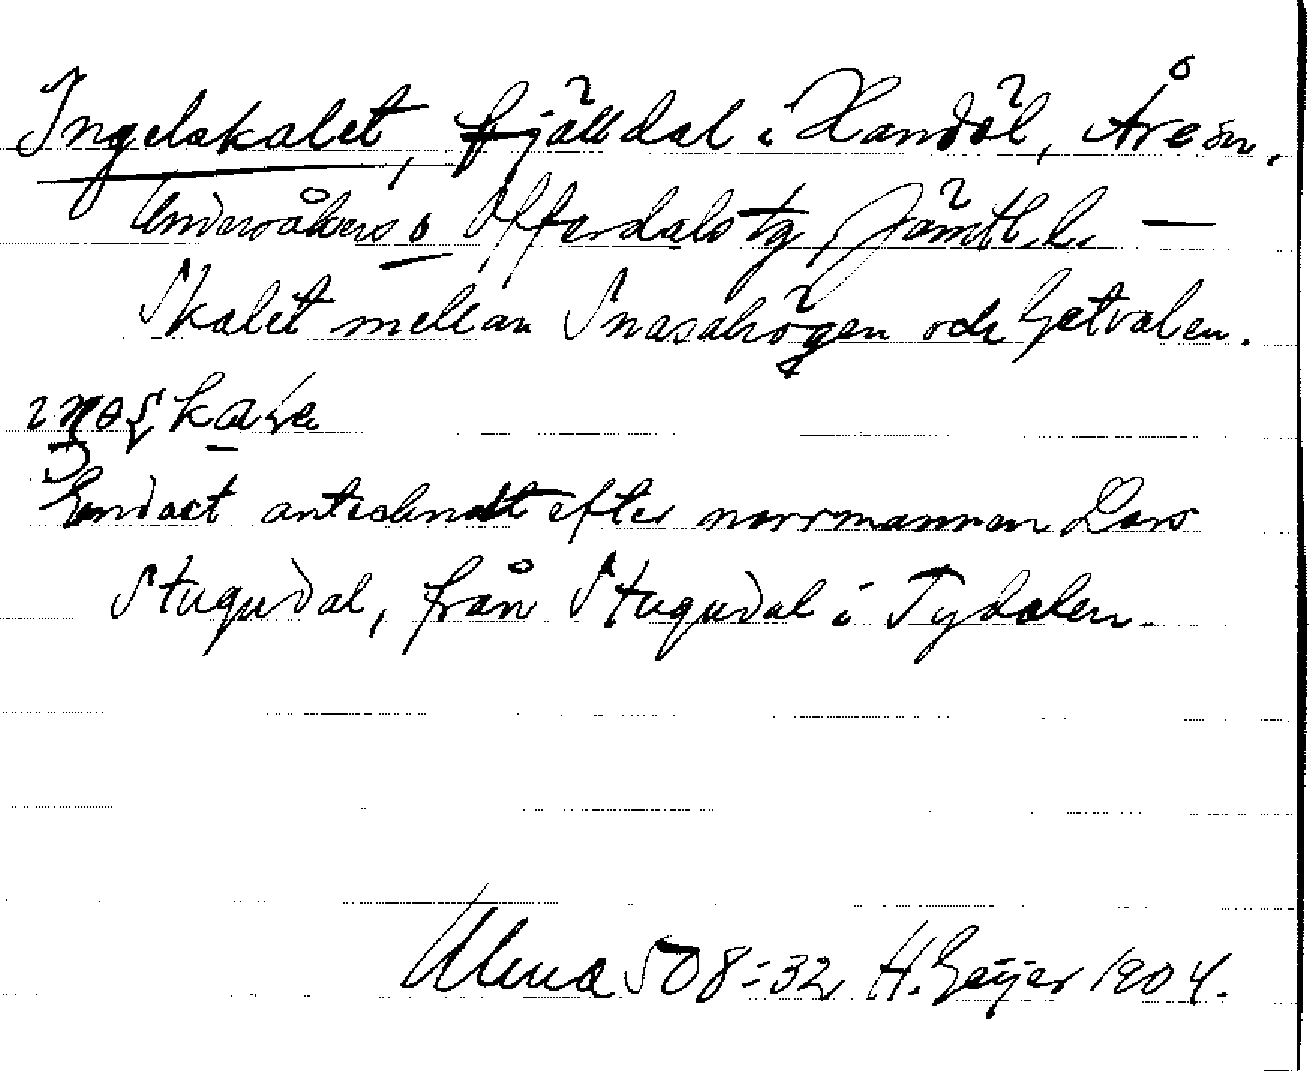 Ingelskalet, fjälldal i Handöl, Åre sn.
Undersåkers o Offerdals tg Jämtl. l. —
Skalet mellan Snasahögen och Getvalen.
Endast antecknat efter norrmannen Lars
Stugudal, från Stugudal i Tydalen.
Ulma 508:32 H. Geijer 1904.